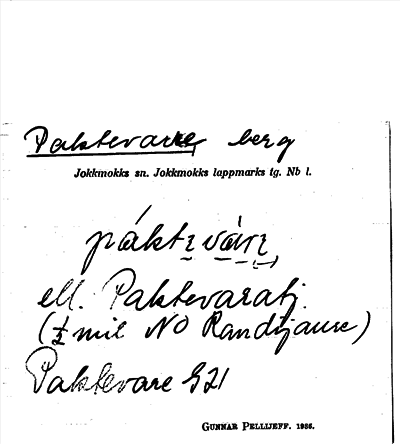 Paktevare berg
Jokkmokks sn. Jokkmokks lappmarks tg. Nb l.
páktɛvárɛ
ell. Paktevaratj.
(½ mil NO Randijaure)
Paktevare G21
GUNNAR PELLIJEFF. 1936.